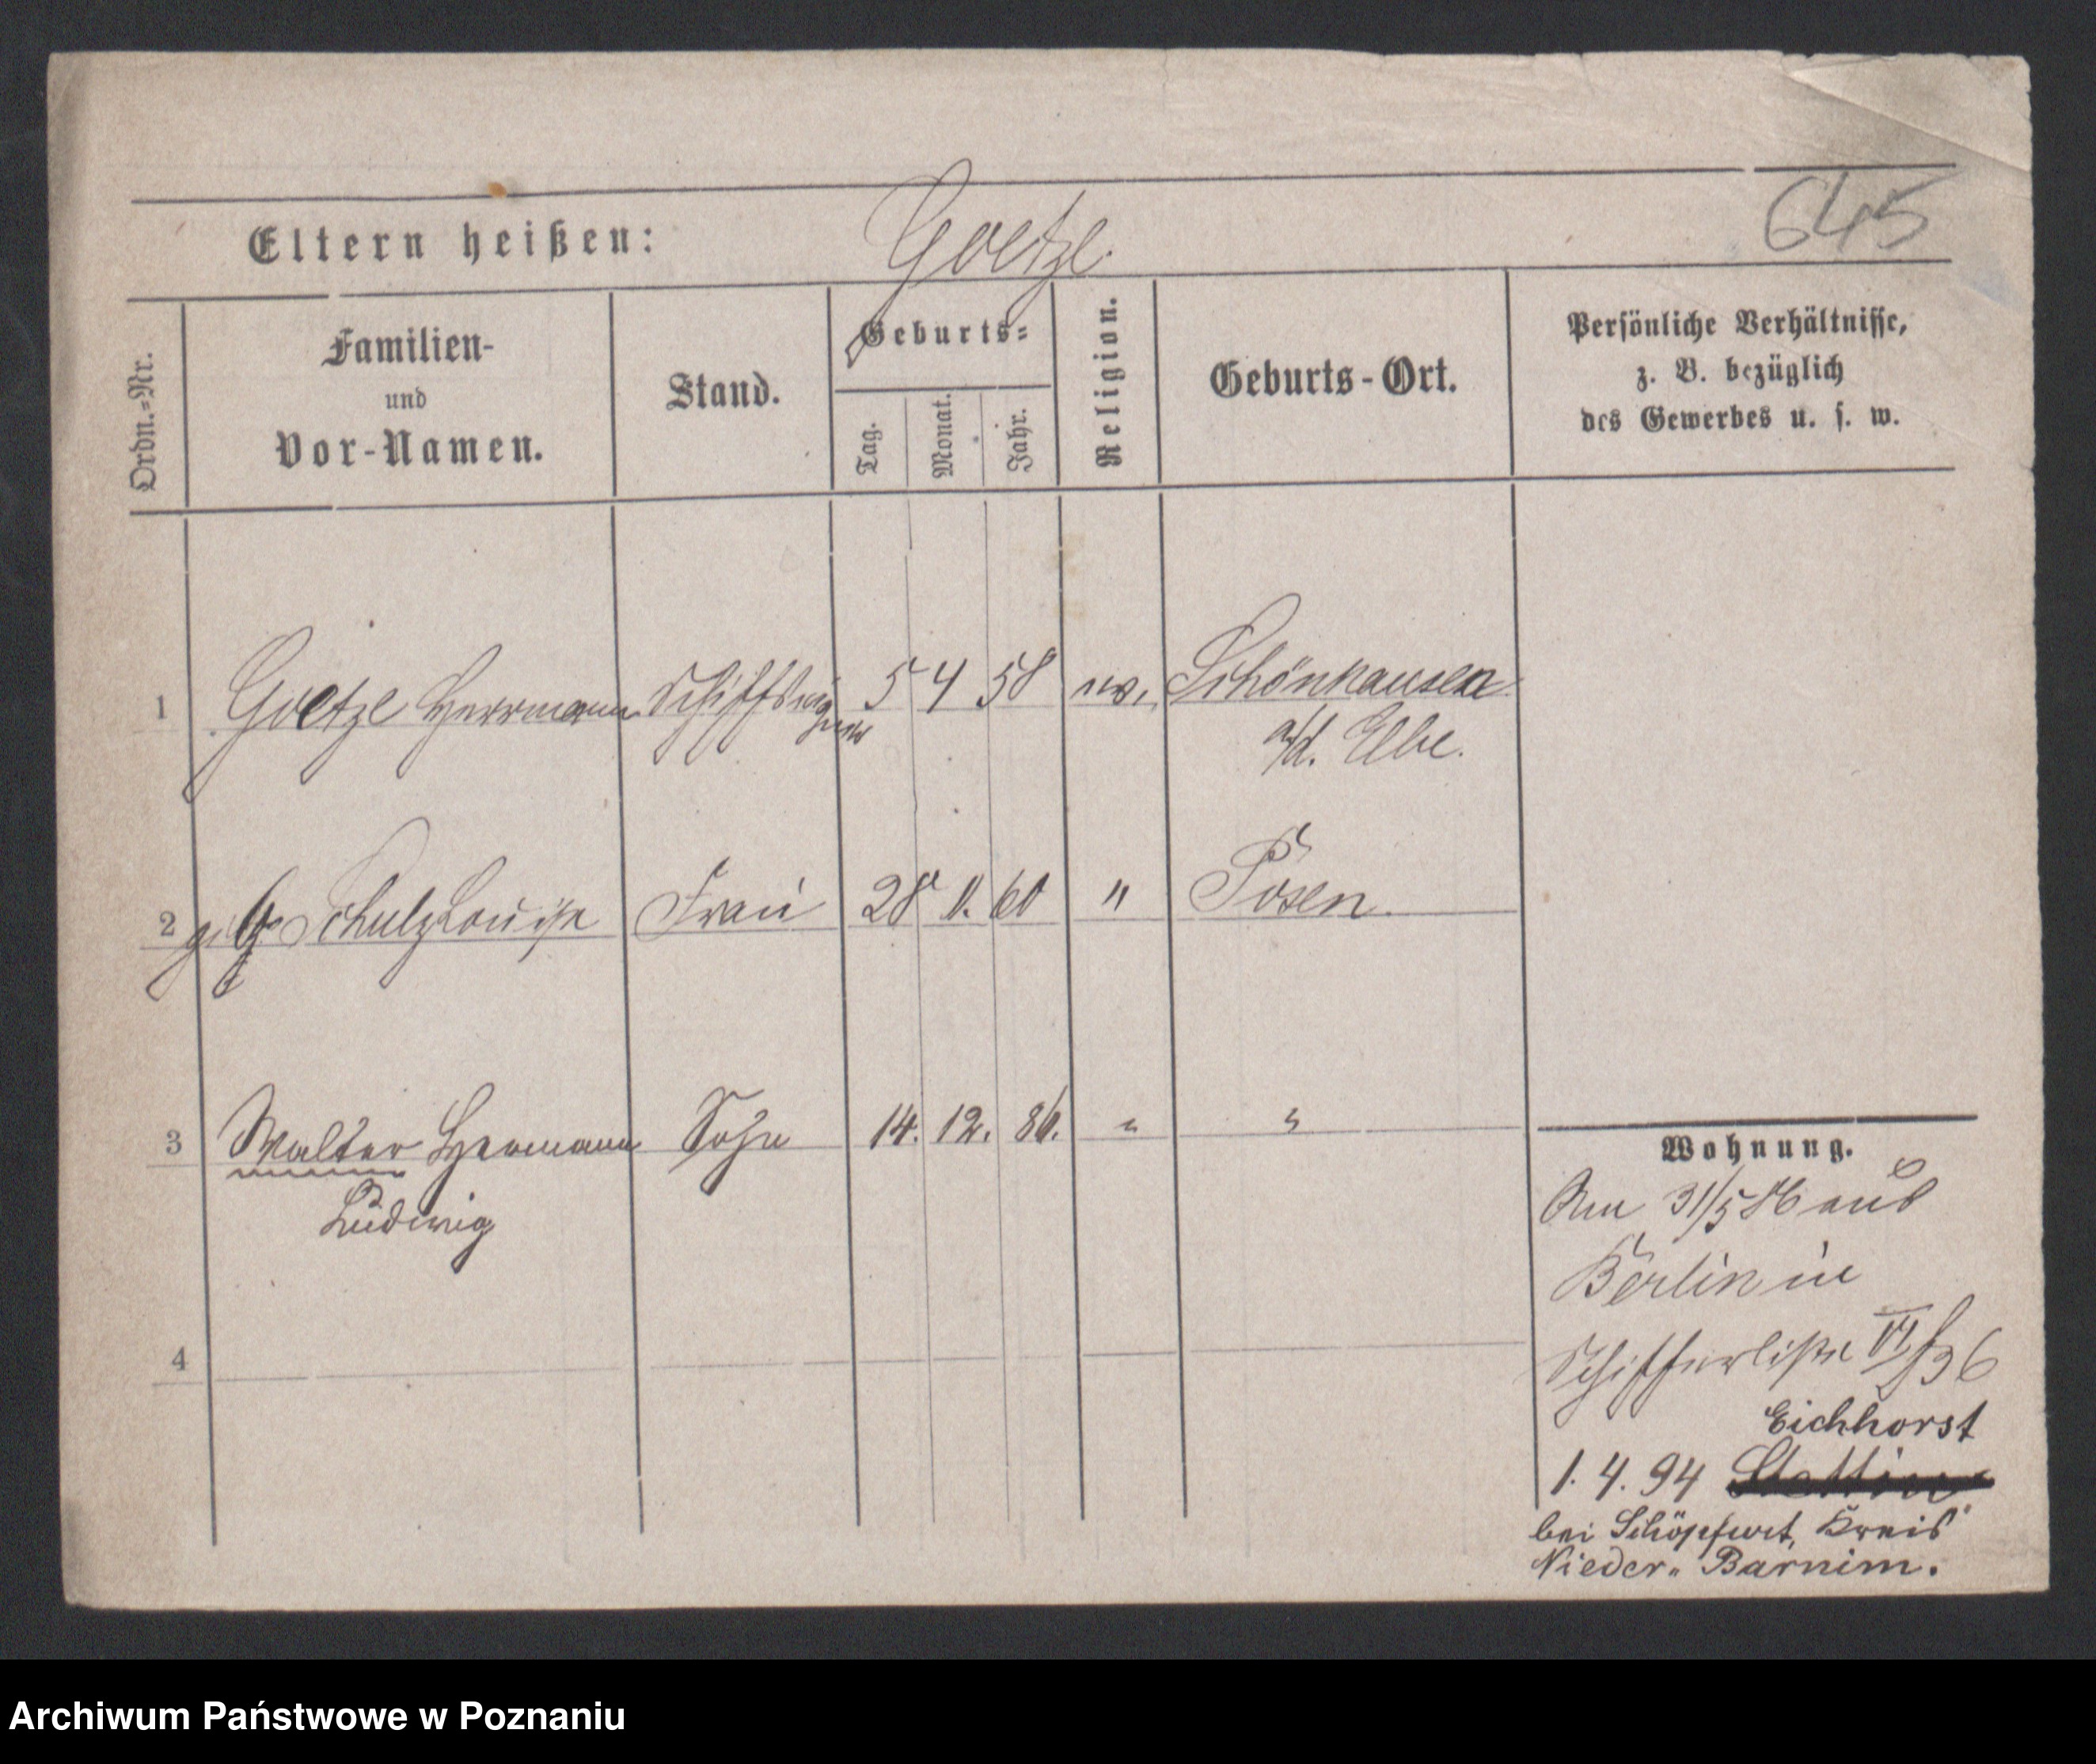 645
Eltern heißen: Goetze.
Ordn.-Nr.
Familien-
und
Vor-Namen.
Stand.
Geburts-
Tag.
Monat.
Jahr.
Religion.
Geburts-Ort.
Persönliche Verhältnisse,
z. B. bezüglich
des Gewerbes u. s. w.
1 Goetze Herrmann Schiffseig 5 4 58 ev. Schönhausen
gner a/d. Elbe.
2 geb. Schulz Louise Frau 28 11. 60 " Posen.
3 Walter Hermann Sohn 14. 12. 86. " "
Ludwig
4
Wohnung.
Am 31/5 86 aus
Berlin in
Schifferliste VI f 36
Eichhorst
1. 4. 94 Stettin
bei Schöpfurt, Kreis
Nieder-Barnim.
Archiwum Państwowe w Poznaniu